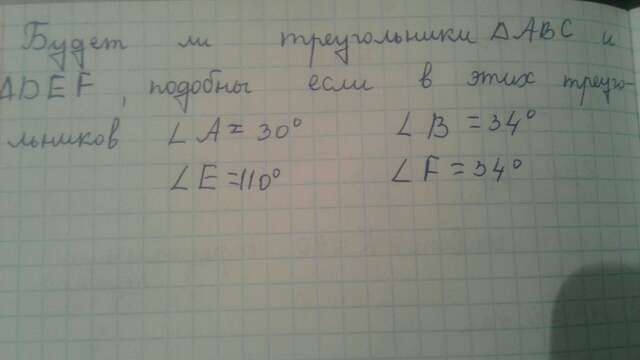 Будет ли треугольники ΔABC и
ΔDEF, подобны если в этих треуго-
льников ∠A = 30° ∠B = 34°
∠E = 110° ∠F = 34°